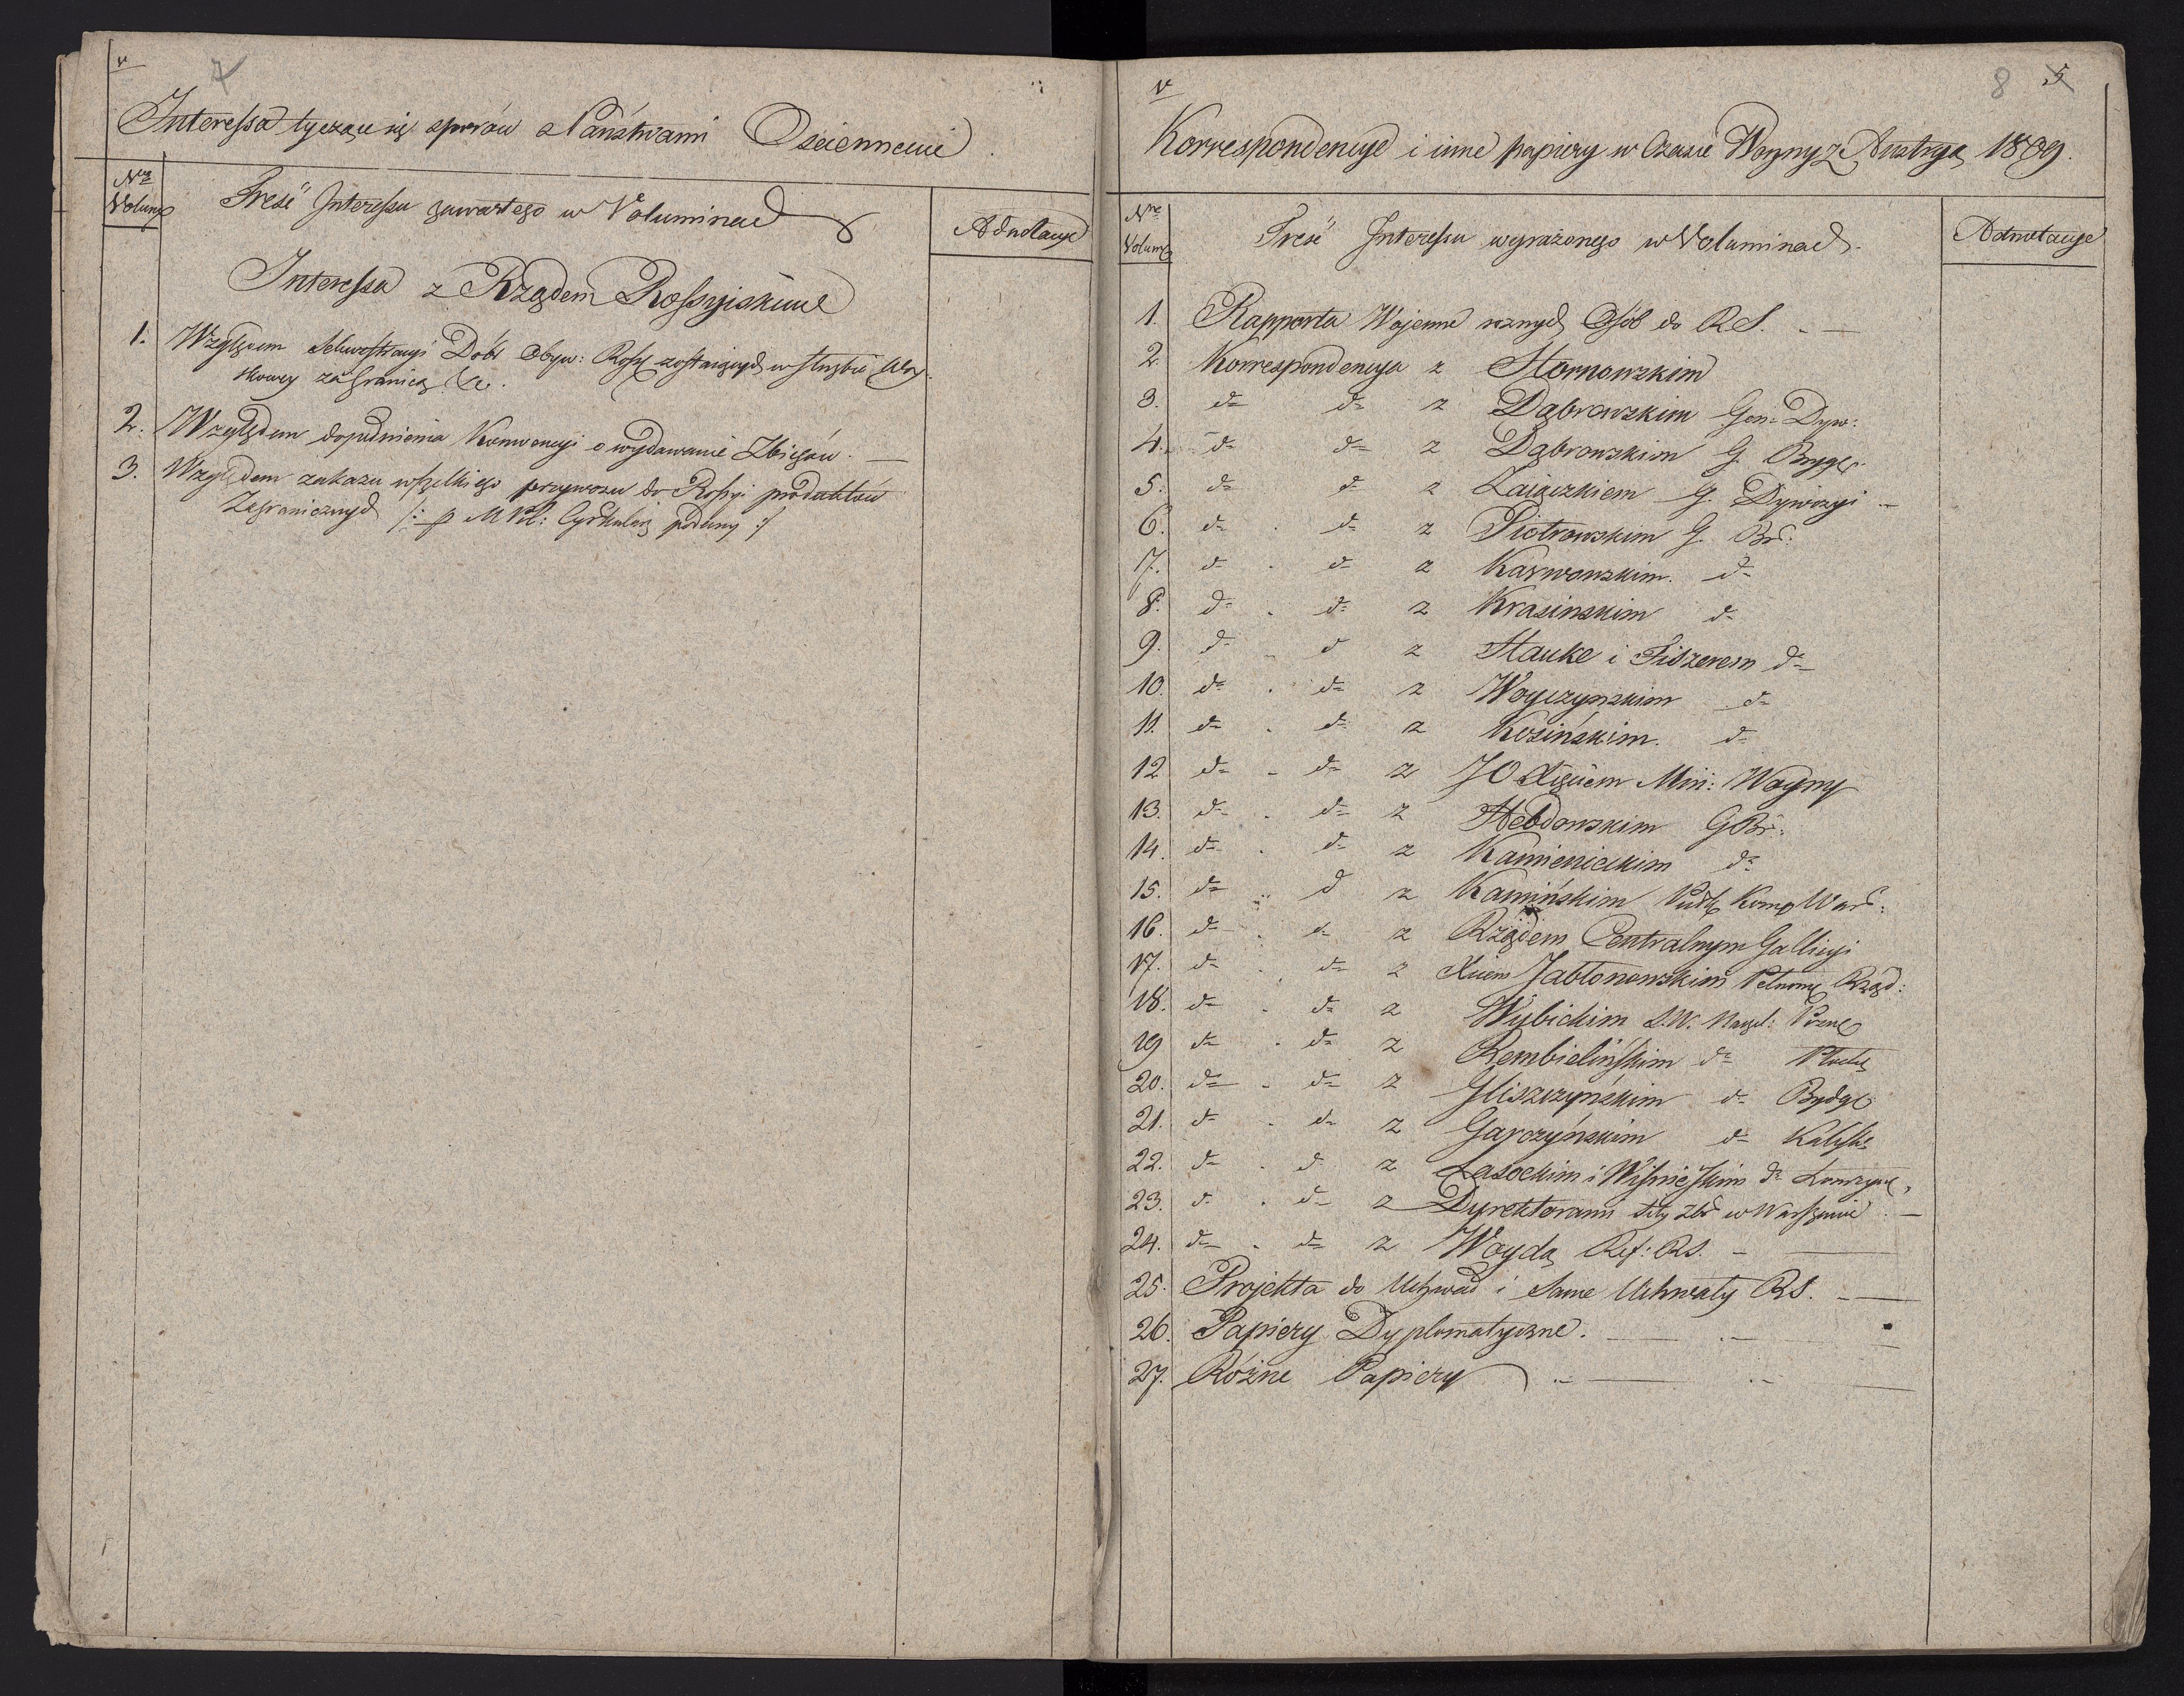 v
7
Interessa tyczące się sporów z Państwami Osciennemi
Nro Volum
Treść Interessu zawartego w Voluminach
Adnotacye
Interessa z Rządem Rossyiskiem
1. Względem Sekwestracyi Dóbr Obyw: Ross. zostaiących w służbie Woy-
skowey za Granicą &c.
2. Względem dopełnienia Konwencyi o wydawanie Zbiegów. —
3. Względem zakazu wszelkiego przywozu do Rossyi produktów
Zagranicznych /:p M Pol: Cyrkularz podany:/
v
8 5
Korrespondencye i inne papiery w Czasie Woyny z Austryą 1809.
Nro Volum
Treść Interessu wyrażonego w Voluminach.
Adnotacye
1. Rapporta Wojenne roznych Osób do RS. —
2. Korrespondencya z Hornowskim
3. do do z Dąbrowskim Gen: Dyw:
4. do do z Dąbrowskim G. Bryg:
5. do do z Zaiączkiem G. Dywizyi —
6. do do z Piotrowskim G. Br:
7. do do z Karwowskim. do
8. do do z Krasinskim do
9. do d z Hauke i Fiszerem do
10. do do z Woyczynskim do
11. do do z Kosińskim. do
12 do do z JO Xięciem Min: Woyny
13. do do z Hebdowskim GBr:
14. do do z Kamienieckim do
15. do d z Kamińskim Pułk Kom Wars:
16. do do z Rządem Centralnym Gallicyi
17. do do z Xciem Jabłonowskim Pełnom Rząd:
18. do do z Wybickim S.W. Naczel: Pozn
19 do do z Rembielińskim do Płock
20. do do z Gliszczyńskim do Bydg:
21. do do z Garczyńskim do Kalisk:
22. do d z Lasockim i Wisniewskim do
23. d do z Dyrektorami Warszawie —
24. do do z Woydą Ref: RS. —
25. Projekta do Uchwał i Same Uchwały RS. —
26. Papiery Dyplomatyczne. —
27. Różne Papiery —